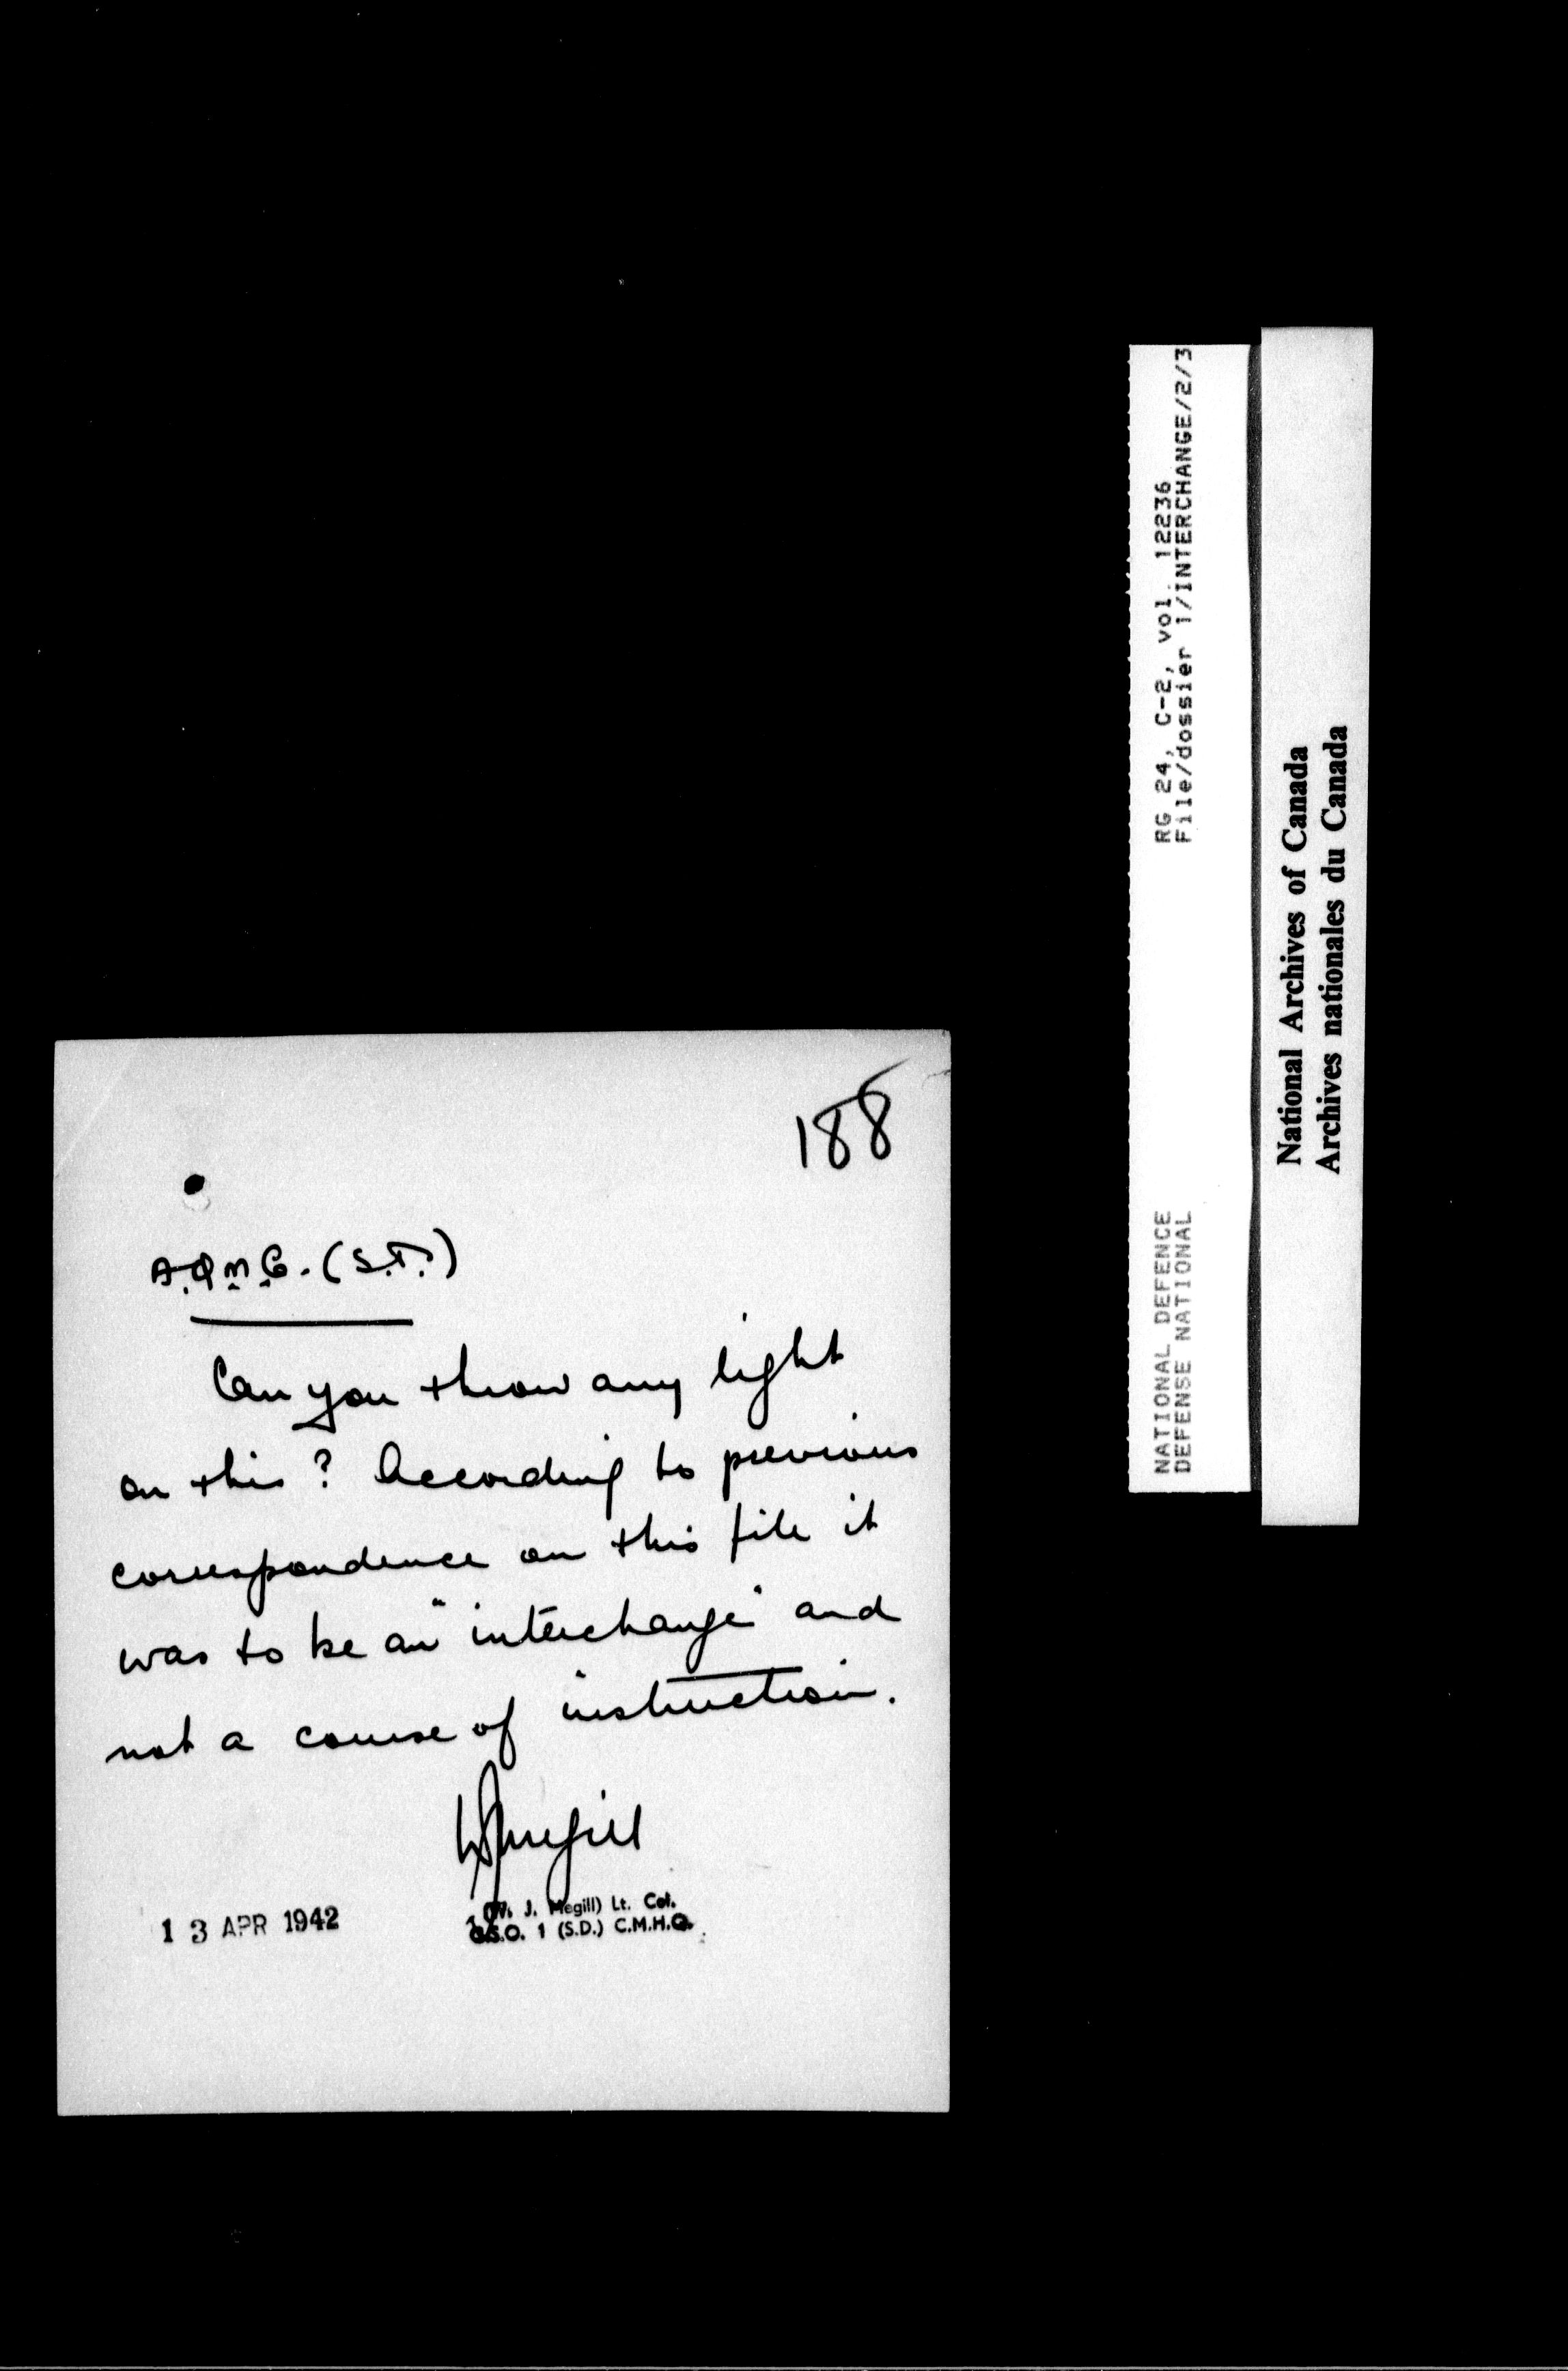 188
A.Q.M.G. (S.T.)
Can you throw any light
on this? According to previous
correspondence on this file it
was to be an "interchange" and
not a course of instruction.
WJMegill
13 APR 1942
(W. J. Megill) Lt. Col.
G.S.O. 1 (S.D.) C.M.H.Q.
NATIONAL DEFENCE RG 24, C-2, vol. 12236
DEFENSE NATIONAL File/dossier 1/INTERCHANGE/2/3
National Archives of Canada
Archives nationales du Canada